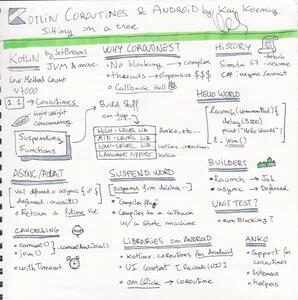 KOTLIN COROUTINES & ANDROID by Kai Koenig
Sitting in a tree
KOTLIN
by JetBrains
JVM & more
Low Method Count
~7000
1.1 → Coroutines
Lightweight
Concurrency
Suspending
Functions
WHY COROUTINES?
No blocking → complex
Threads → Expensive $$$
Callback Hell
HISTORY
Simula 67
C# async/await
Build Stuff
on top
HIGH-LEVEL LIB
Anko, etc...
MID-LEVEL LIB
LOW-LEVEL LIB
kotlinx.coroutines
LANGUAGE SUPPORT
Kotlin
HELLO WORLD
launch(CommonPool) {
delay(500)
print("Hello World")
}.join()
ASYNC/AWAIT
val deferred = async { }
deferred.await()
Return a future
SUSPEND WORD
suspend fun
Compiler
Compiles to a callback
w/ a State machine
BUILDERS
launch → Job
async → Deferred
UNIT TEST?
runBlocking?
CANCELLING
cancel()
join()
withTimeout
LIBRARIES on ANDROID
kotlinx.coroutines for Android
UI context [launch(UI)]
onClick → coroutine
ANKO
Support for
coroutines
listeners
helpers